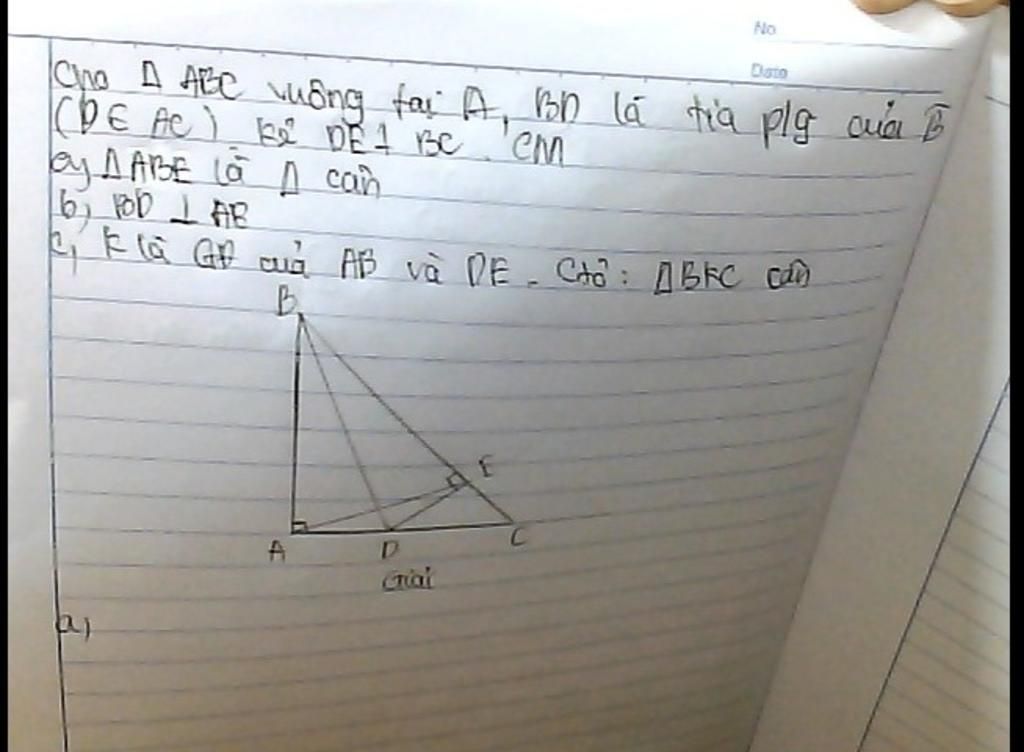 No
Date
Cho Δ ABC vuông tại A, BD là tia p/g của B̂
(D ∈ AC) kẻ DE ⊥ BC. CM
a, Δ ABE là Δ cân
b, BD ⊥ AE
c, K là GĐ của AB và DE. Ctỏ: ΔBKC cân
B
E
A D C
Giải
a,